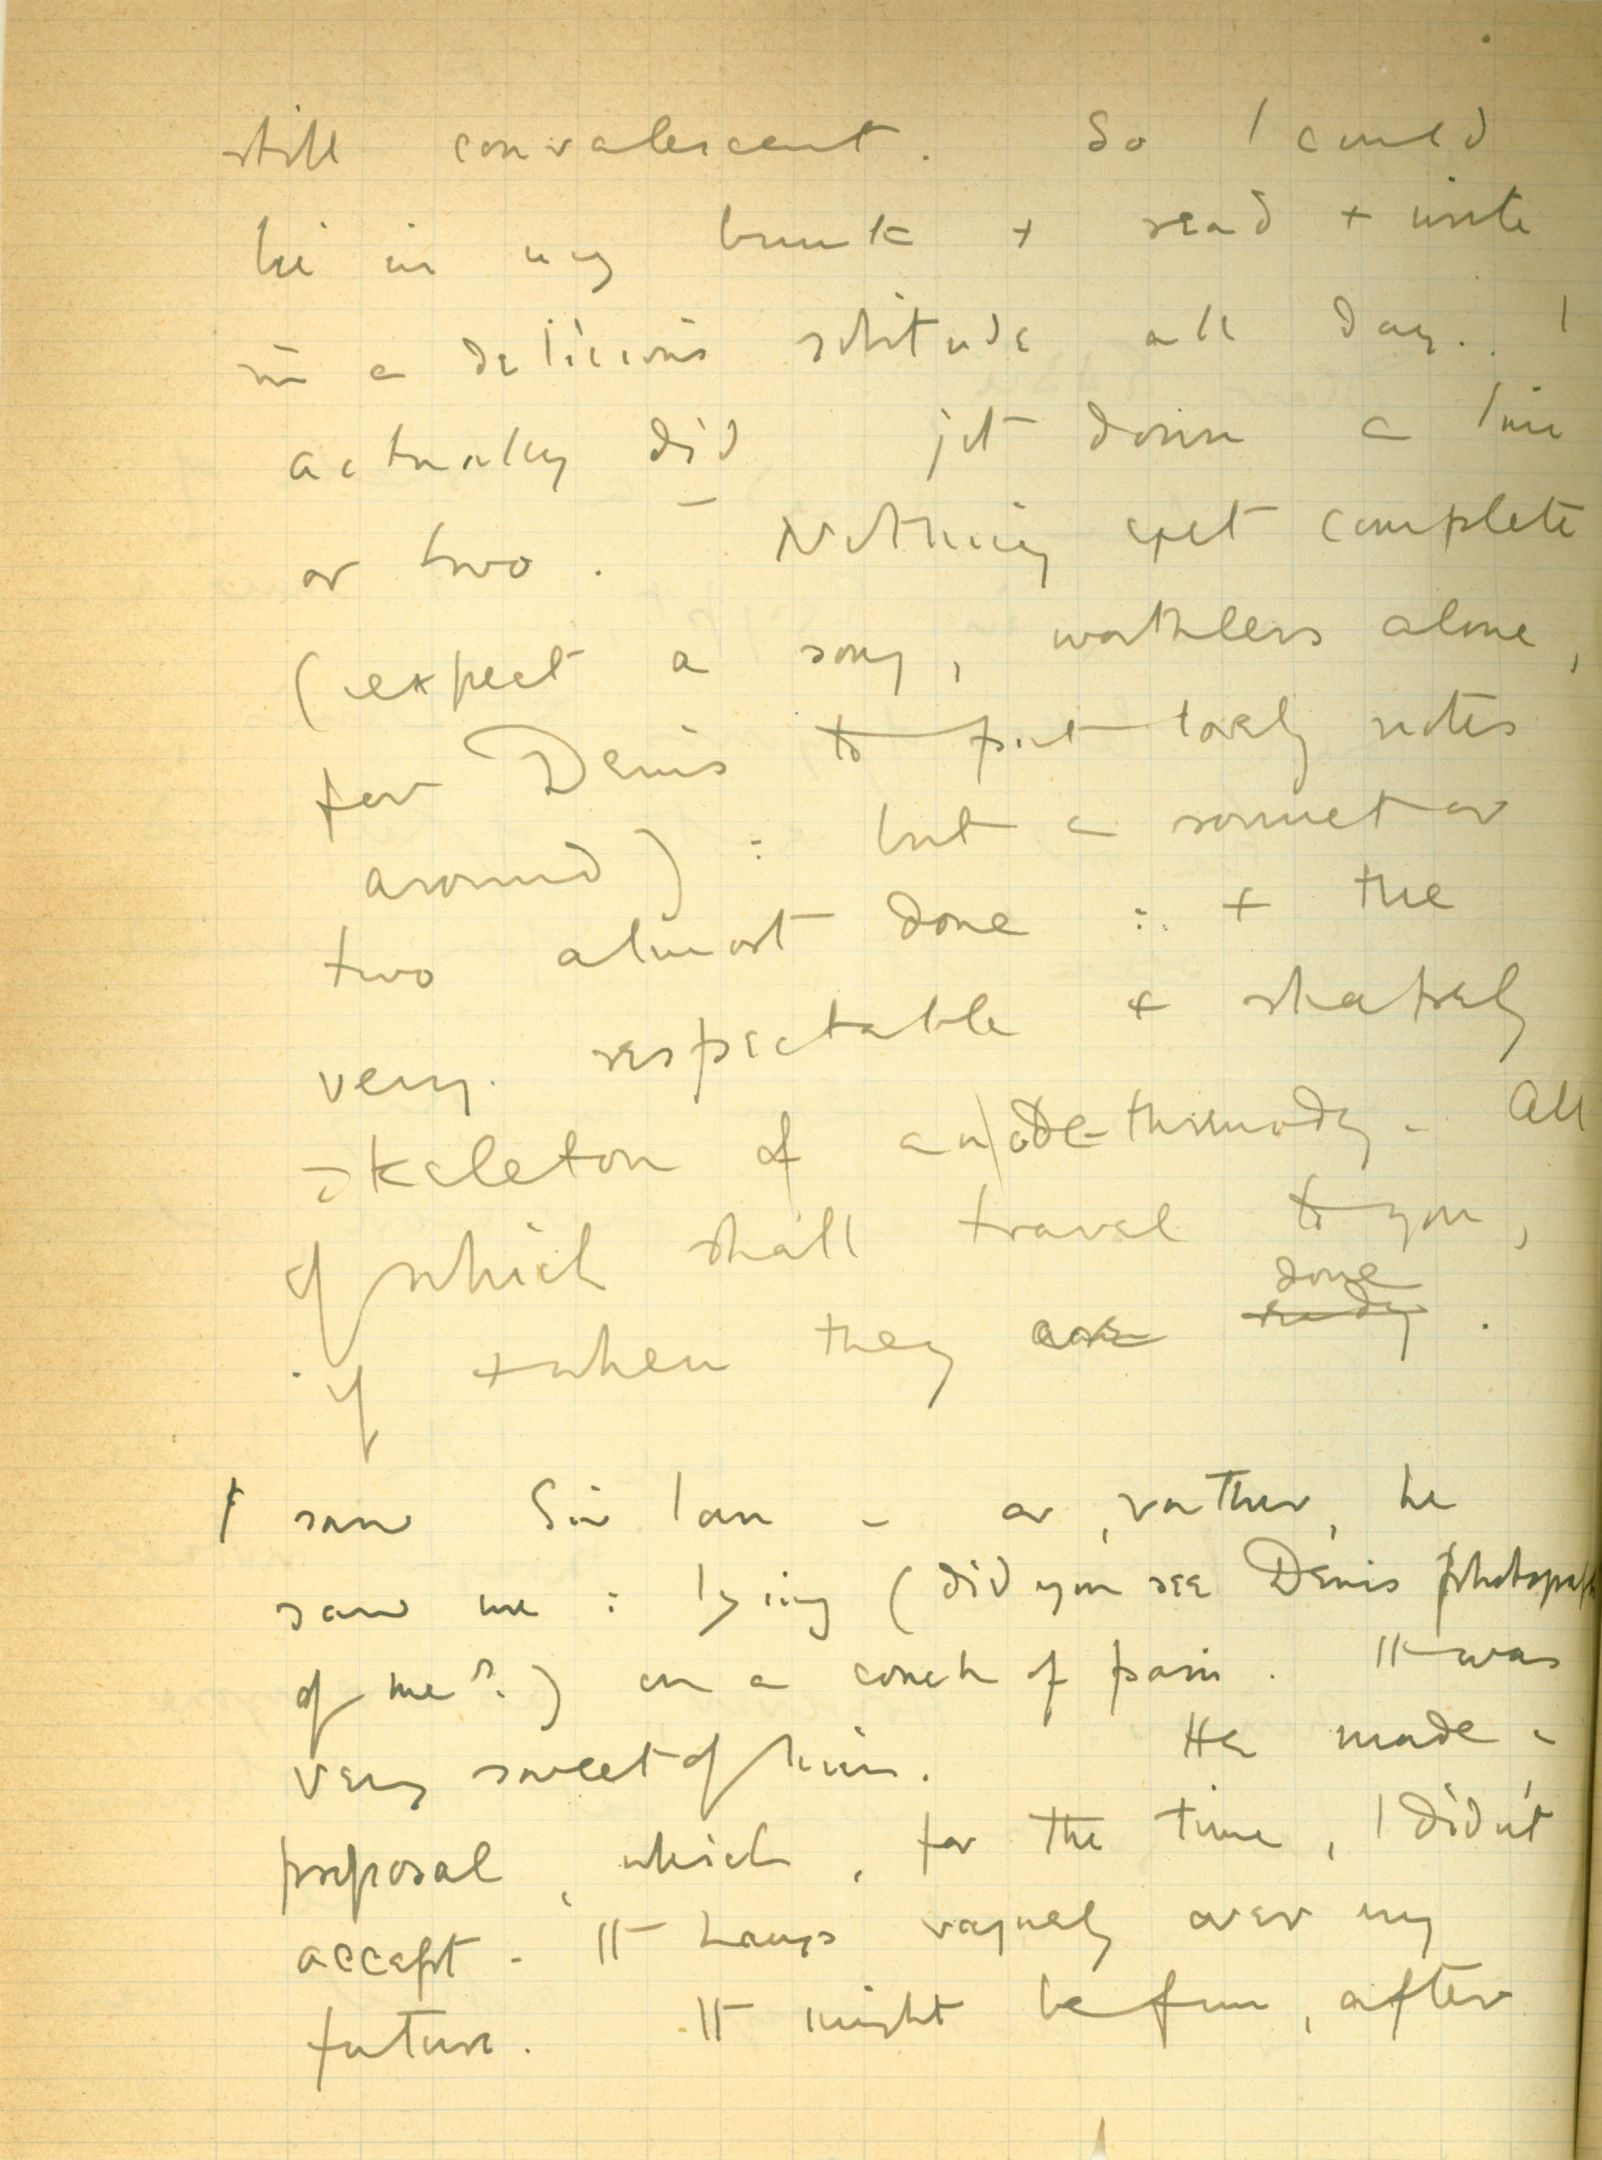 still convalescent. So I could
lie in my bunk + read + write
in a delicious solitude all day. I
actually did jot down a line
or two. – Nothing yet complete
(expect a song, worthless alone,
for Denis to put lovely notes
around) : but a sonnet or
two almost done : + the
very respectable + shapely
skeleton of an ode-threnody. All
of which shall travel to you,
if + when they are ready done.
I saw Sir Ian – or, rather, he
saw me : lying (did you see Denis photograph
of me?) on a couch of pain. It was
very sweet of him. He made a
proposal, which, for the time, I didn't
accept. It hangs vaguely over my
future. It might be fun, after